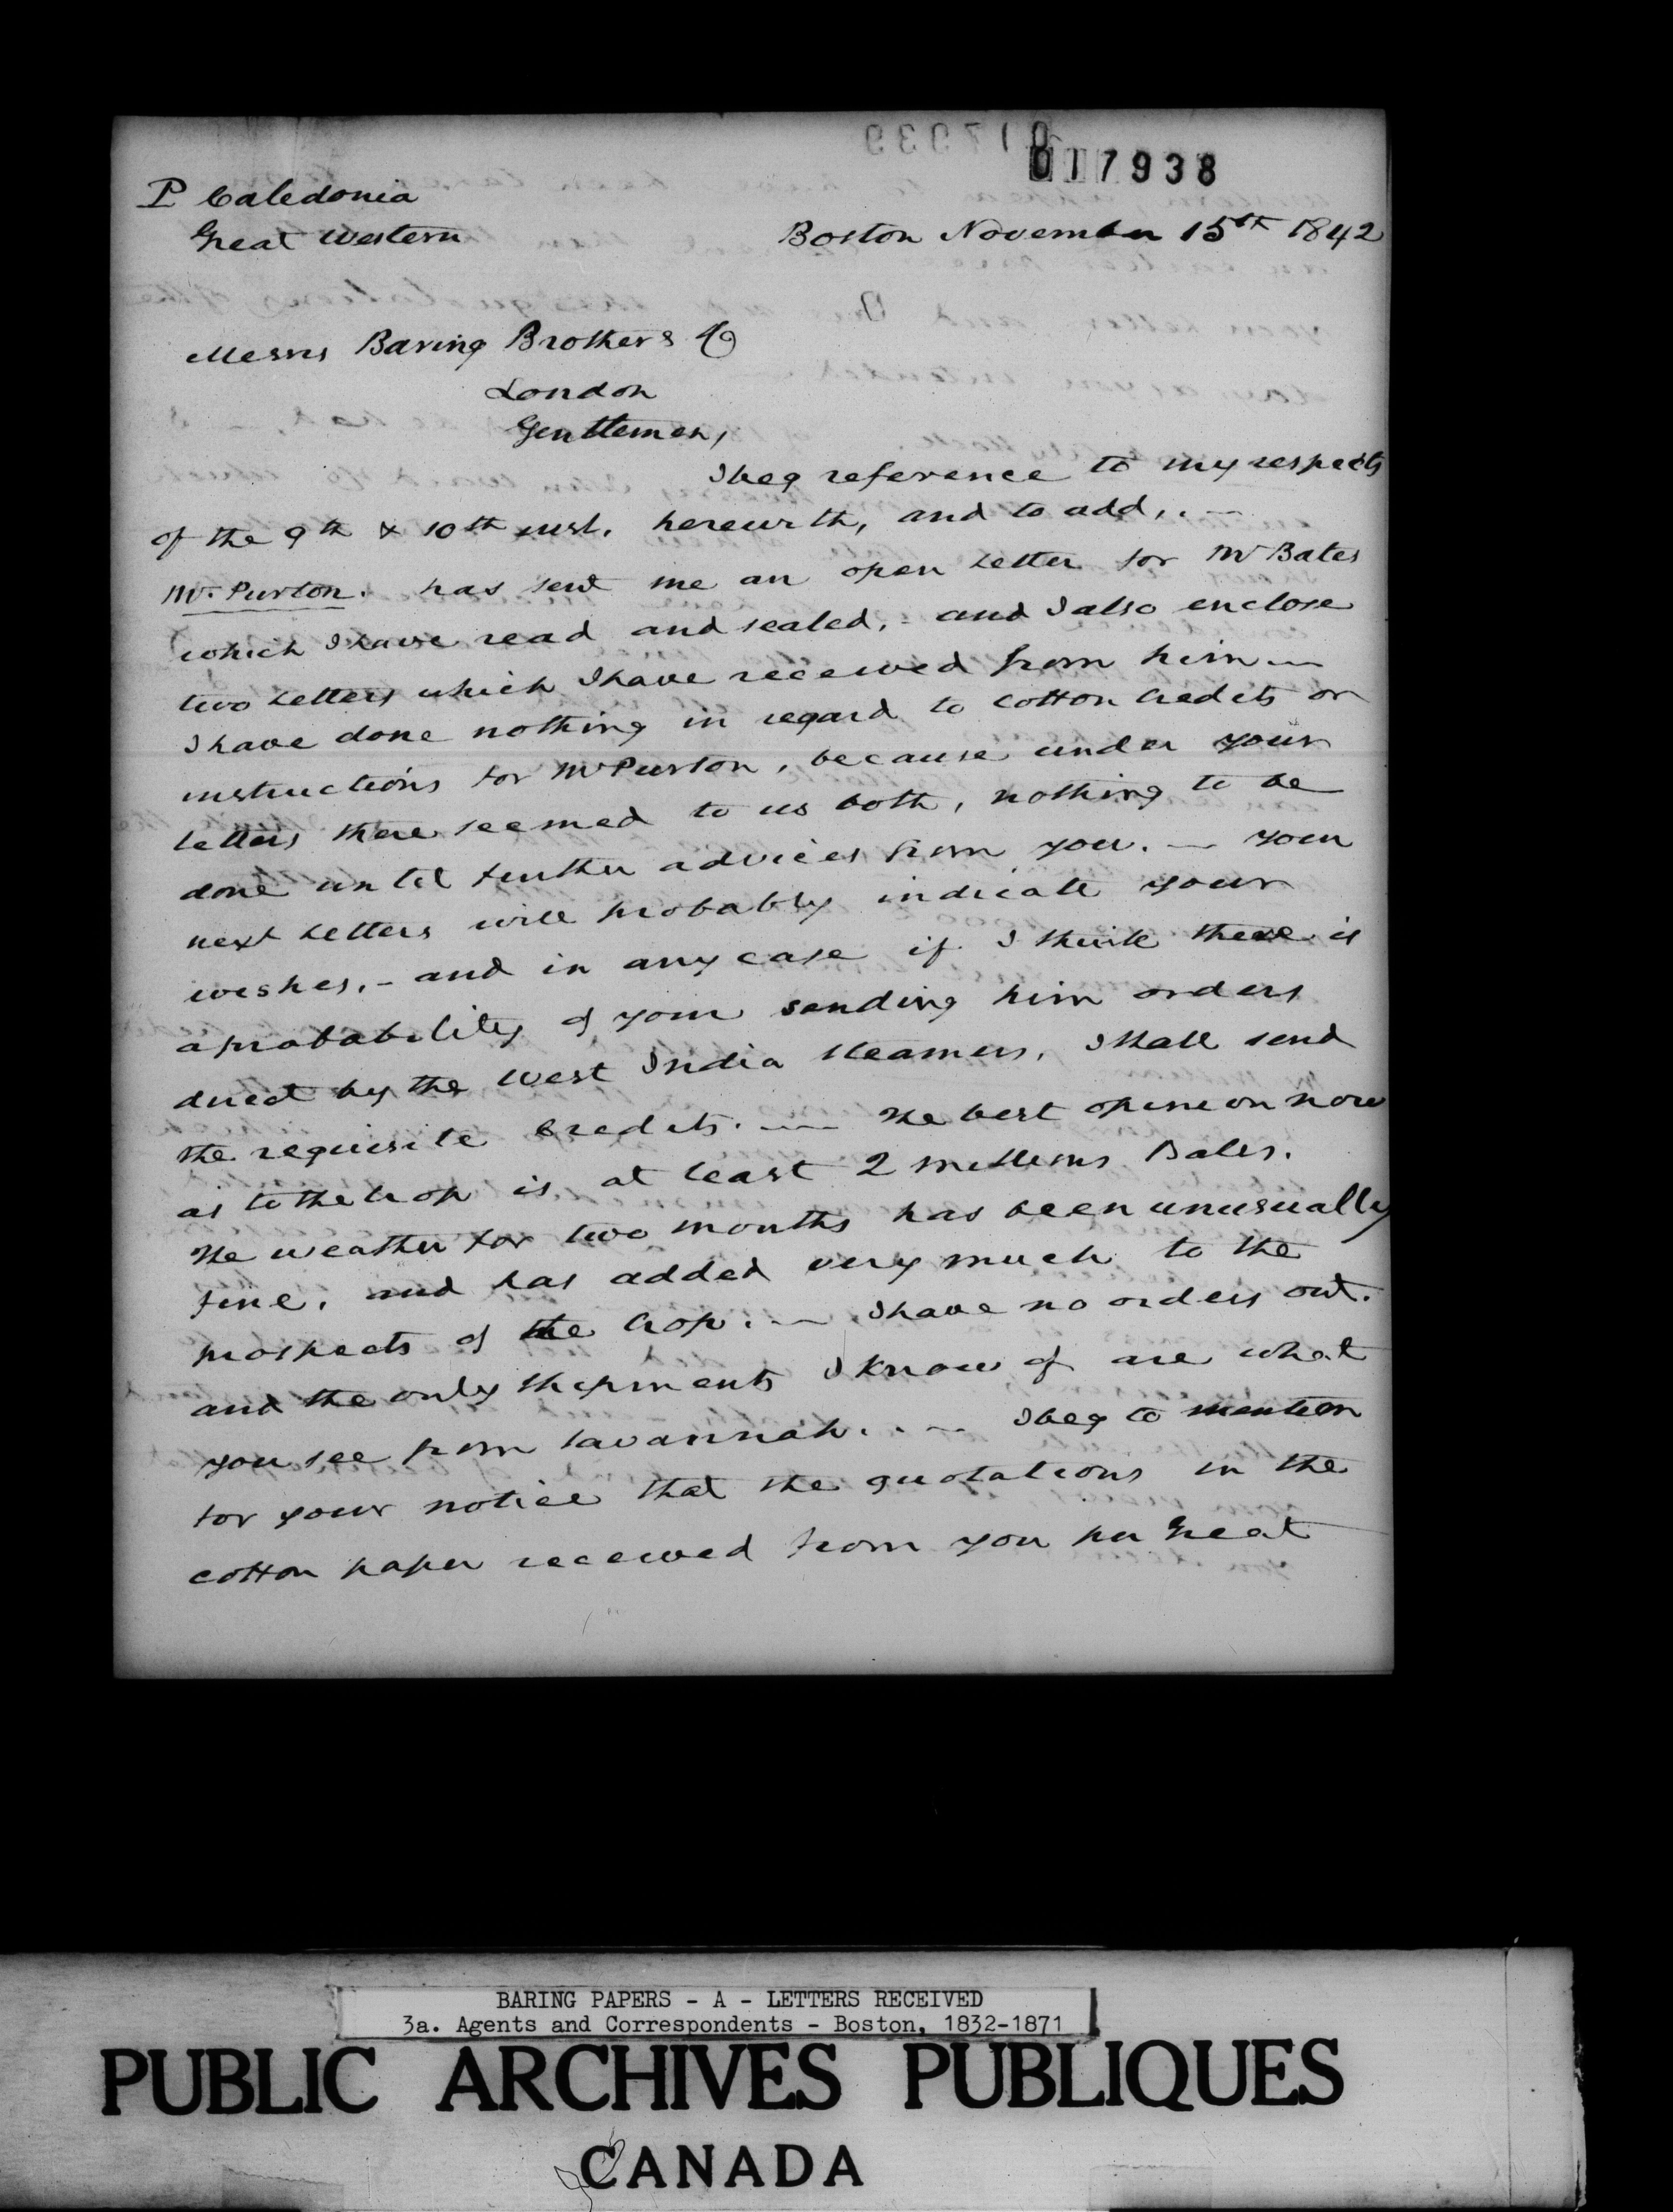 017938
P Caledonia
Great Western
Boston November 15th 1842
Messrs Baring Brothers & Co
London
Gentlemen,
I beg reference to my respects
of the 9th & 10th inst. herewith, and to add,. —
Mr. Purton. has sent me an open letter for Mr Bates
which I have read and sealed, - and I also enclose
two letters which I have received from him —
I have done nothing in regard to cotton credits or
instructions for Mr Purton, because under your
letters there seemed to us both, nothing to be
done until further advices from you. — Your
next letters will probably indicate your
wishes, - and in any case if I think there is
a probability of your sending him orders
direct by the West India Steamers, I shall send
the requisite credits. — The best opinion now
as to the crop is at least 2 millions Bales.
The weather for two months has been unusually
fine, and has added very much to the
prospects of the crop. — I have no orders out.
and the only shipments I know of are what
you see from Savannah. . — I beg to mention
for your notice that the quotations in the
cotton paper received from you per Great
BARING PAPERS - A - LETTERS RECEIVED
3a. Agents and Correspondents - Boston, 1832-1871
PUBLIC ARCHIVES PUBLIQUES
CANADA